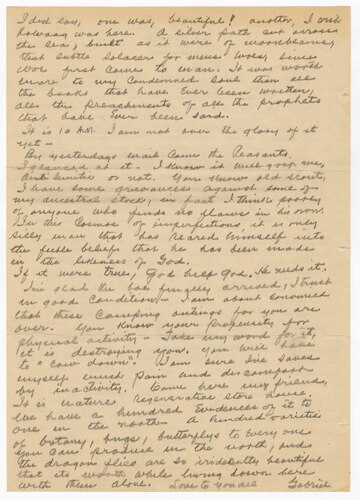 I did say, one was, beautiful! another, I wish
was here. A silver path cut across
the sea, built as it were of moonbeams,
that subtle solacer for mens' woes, since
woe first come to man. It was worth
more to my Condemned soul than all
the books that have Ever been written,
all the preachments of all the prophets
that have Ever been said.
It is 10 A.M. I am not over the glory of it
yet —
By yesterdays mail Came the Peasants.
I glanced at it. I Know it will grip me,
And Semitic or not. You Know old scout,
I have some grievances against some of
my ancestral stock, in fact I think poorly
of anyone who finds no flaws in his own.
In the Cosmos of imperfections, it is only
silly man that has reared himself into
the feeble belief that he has been made
in the likeness of God.
If it were true, God help God. He needs it.
I'm glad the box finally arrived, I trust
in good Condition — I am about convinced
that these Camping outings for you are
over. You Know your propensity for
physical activity — Take my word for it,
it is destroying you. You will have
to "cow down". I am sure I've saved
myself much pain and discomfort
by inactivity. Come here my friend,
It is natures regenerative store house.
We have a hundred Evidences of it to
one in the north — A hundred varieties
of botany, bugs, butterflys to Every one
you can produce in the north, and
the dragon flies are so iridescently beautiful
that its worth while living down here
with them alone. Love to you all Gabriel